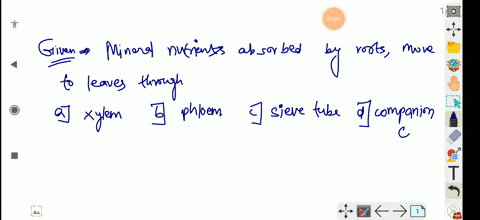 Given → Mineral nutrients absorbed by roots, move
to leaves through
a] xylem b] phloem c] sieve tube d] companion
c